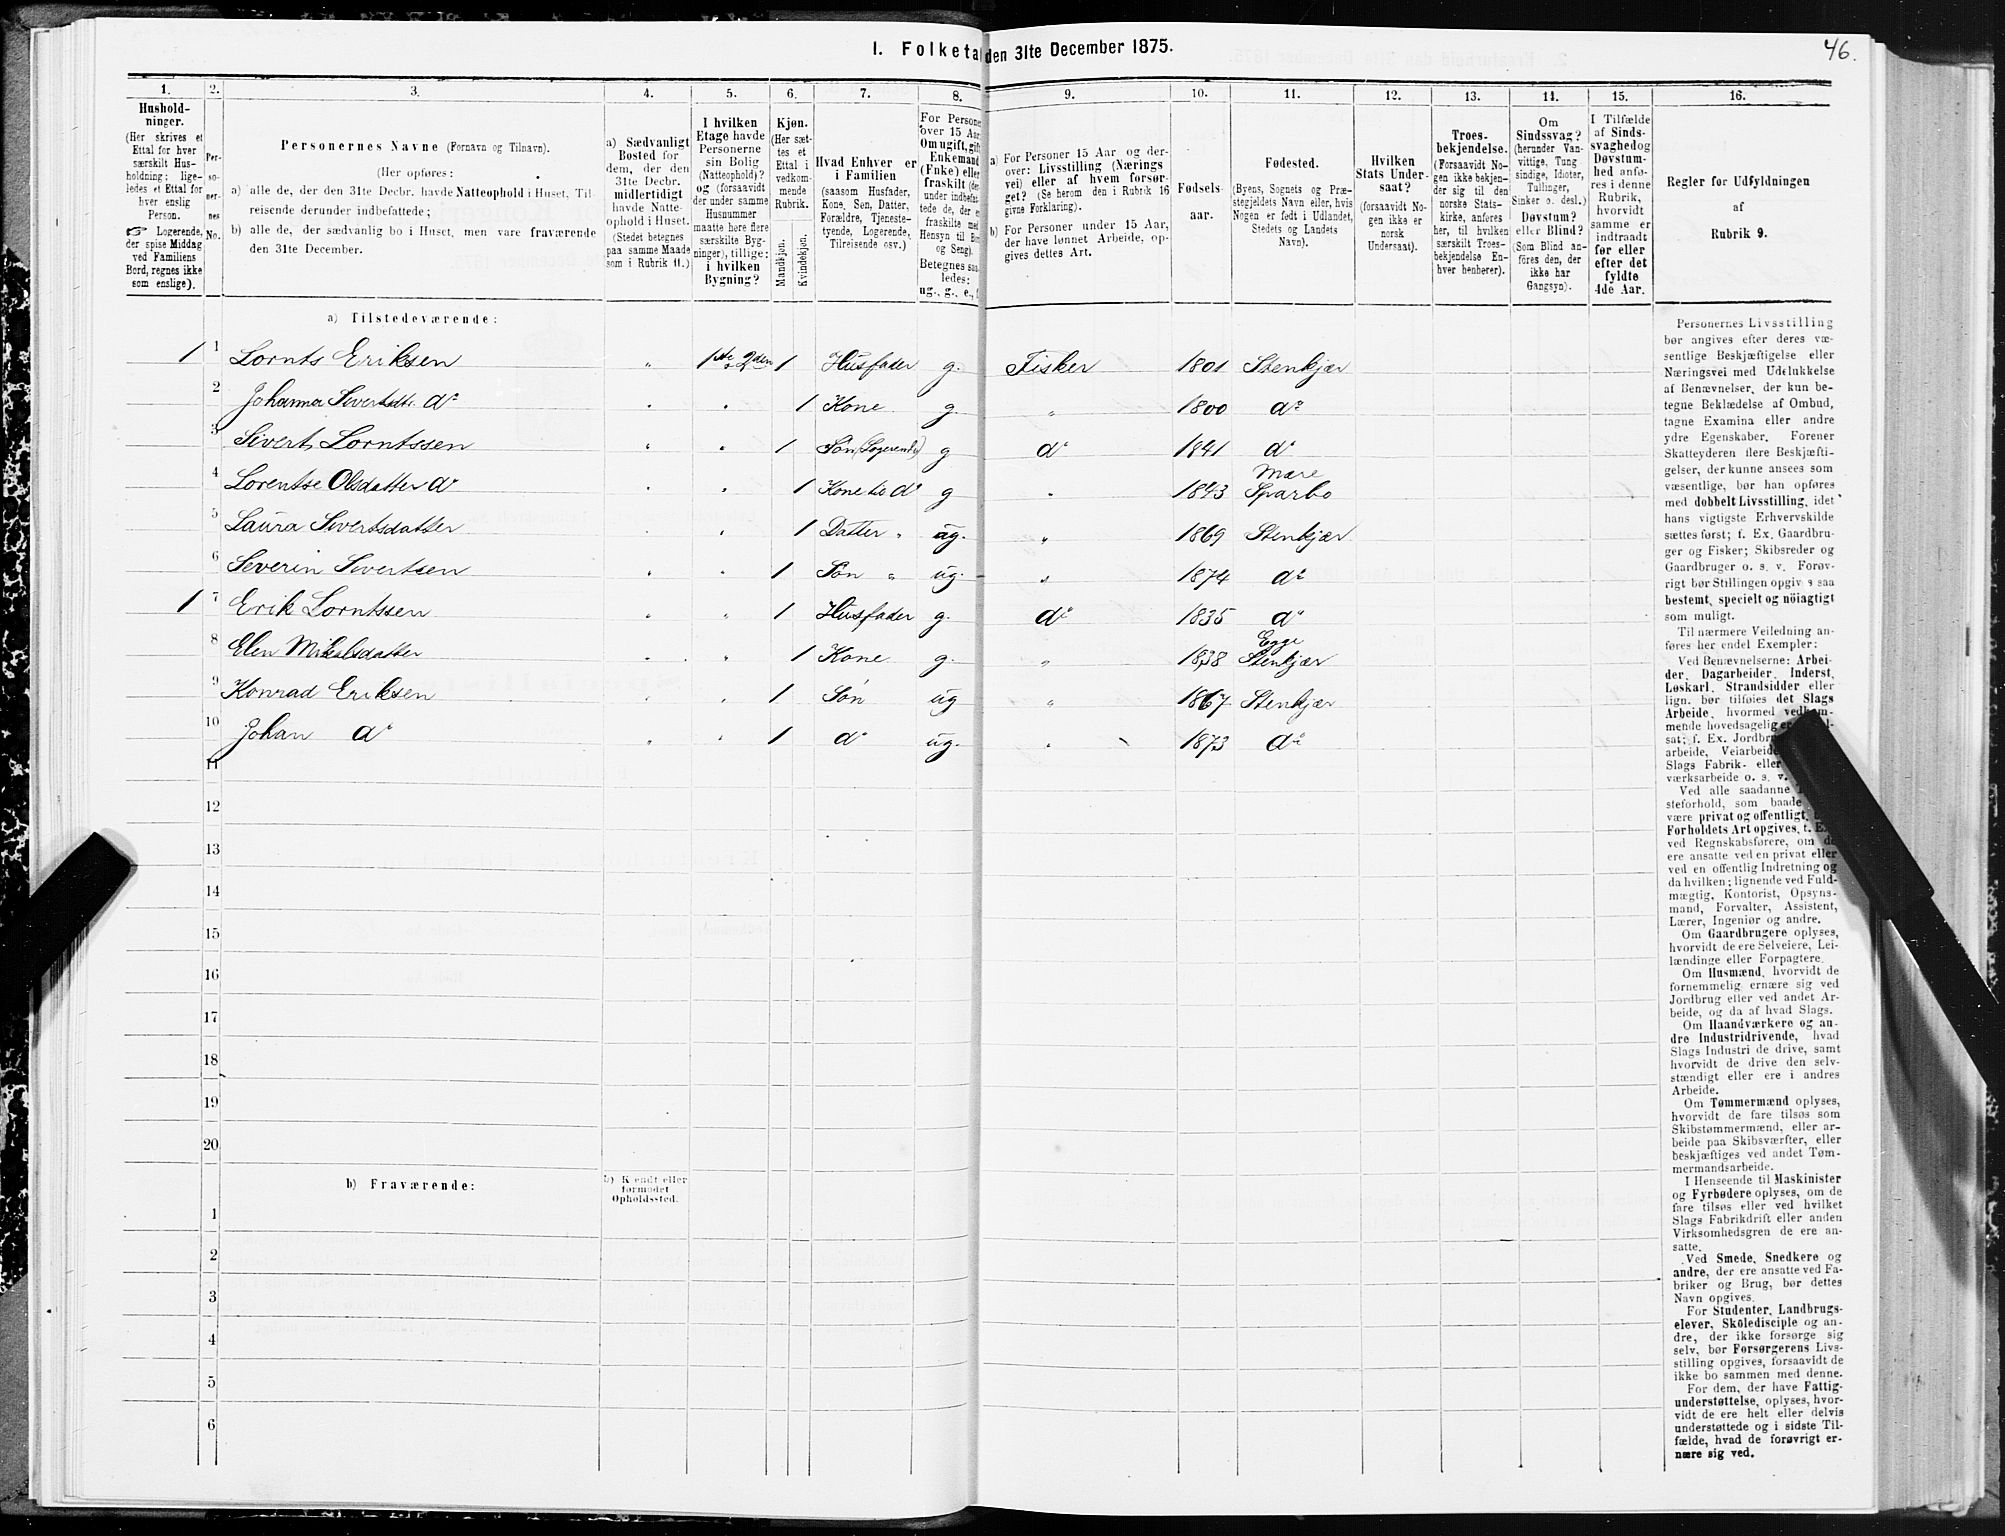 46.
I. Folketa den 31te December 1875.
1. 2. 3. 4. 5. 6. 7. 8. 9. 10. 11. 12. 13. 14. 15. 16.
Hushold-
ninger.
(Her skrives et
Ettal for hver
særskilt Hus-
holdning; lige-
ledes et Ettal for
hver enslig
Person.
☞ Logerende,
der spise Middag
ved Familiens
Bord, regnes ikke
som enslige).
Per-
so-
ner-
nes
No.
Personernes Navne (Fornavn og Tilnavn).
(Her opføres:
a) alle de, der den 31te Decbr. havde Natteophold i Huset, Til-
reisende derunder indbefattede;
b) alle de, der sædvanlig bo i Huset, men vare fraværende
den 31te December.
a) Sædvanligt
Bosted for
dem, der den
31te Decbr.
midlertidigt
havde Natte-
ophold i Huset.
(Stedet betegnes
paa samme Maade
som i Rubrik 11.)
I hvilken
Etage havde
Personerne
sin Bolig
(Natteophold)?
og (forsaavidt
der under samme
Husnummer
maatte høre flere
særskilte Byg-
ninger), tillige:
i hvilken
Bygning?
Kjøn.
(Her sæt-
tes et
Ettal i
vedkom-
mende
Rubrik.
Mandkjøn.
Kvindekjøn.
Hvad Enhver er
i Familien
(saasom Husfader,
Kone, Søn, Datter,
Forældre, Tjeneste-
tyende, Logerende,
Tilreisende osv.)
For Persone
over 15 Aar
Om ugift, gift
Enkemand
(Enke) eller
fraskilt (der
under indbefat-
tede de, der e
fraskilte med
Hensyn til Bo
og Seng).
Betegnes saa
ledes:
ug., g., e.,
a) For Personer 15 Aar og der-
over: Livsstilling (Nærings
vei) eller af hvem forsør-
get? (Se herom den i Rubrik 16
givne Forklaring).
b) For Personer under 15 Aar,
der have lønnet Arbeide, op-
gives dettes Art.
Fødsels-
aar.
Fødested.
(Byens, Sognets og Præ-
stegjeldets Navn eller, hvis
Nogen er født i Udlandet,
Stedets og Landets
Navn).
Hvilken
Stats Under-
saat?
(forsaavidt No-
gen ikke er
norsk
Undersaat).
Troes-
bekjendelse.
(Forsaavidt No-
gen ikke bekjen-
der sig til den
norske Stats-
kirke, anføres
her, til hvilken
særskilt Troes-
bekjendelse En-
hver henhører).
Om
Sindssvag?
(herunder Van-
vittige, Tung
sindige, Idioter,
Tullinger,
Sinker o. desl.)
Døvstum?
eller Blind?
(Som Blind an-
føres den, der
ikke har
Gangsyn).
I Tilfælde
af Sinds-
svaghed og
Døvstum-
hed anfø-
res i denne
Rubrik,
hvorvidt
samme er
indtraadt
før eller
efter det
fyldte
4de Aar.
Regler for Udfyldningen
af
Rubrik 9.
a) Tilstedeværende:
1 1 Lornts Eriksen " 1ste 2den 1 Husfader g. Fisker 1801 Stenkjær
2 Johanna Sivertsdtr. do " " 1 Kone g. " 1800 do
3 Sivert Lorntssen " " 1 Søn (Logerende) g do 1841 do
4 Lorentse Olsdatter do " " 1 Kone til do g " 1843 Mære Sparbo
5 Laura Sivertsdatter " " 1 Datter " ug. " 1869 Stenkjær
6 Severin Sivertsen " " 1 Søn " ug. " 1874 do
1 7 Erik Lorntssen " " 1 Husfader g. do 1835 do
8 Elen Mikalsdatter " " 1 Kone g. " 1838 Egge Stenkjær
9 Konrad Eriksen " " 1 Søn ug " 1867 Stenkjær
10 Johan do " " 1 do ug. " 1873 do
11
12
13
14
15
16
17
18
19
20
b) Fraværende:
b) Kjendt eller
formodet
Opholdssted.
1
2
3
4
5
6
Personernes Livsstilling
bør angives efter deres væ-
sentlige Beskjæftigelse eller
Næringsvei med Udelukkelse
af Benævnelser, der kun be-
tegne Beklædelse af Ombud,
tagne Examina eller andre
ydre Egenskaber. Forener
Skatteyderen flere Beskjæfti-
gelser, der kunne ansees som
væsentlige, bør han opføres
med dobbelt Livsstilling, idet
hans vigtigste Erhvervskilde
sættes først; f. Ex. Gaardbru-
ger og Fisker; Skibsreder og
Gaardbruger o. s. v. Forøv-
rigt bør Stillingen opgives saa
bestemt, specielt og nöiagtigt
som muligt.
Til nærmere Veiledning an-
føres her endel Exempler:
Ved Benævnelserne: Arbei-
der, Dagarbeider, Inderst,
Løskarl, Strandsidder eller
lign. bør tilføies det Slags
Arbeide, hvormed vedkom-
mende hovedsagelig er
sat; f. Ex. Jordbr
arbeide, Veiarbeide
Slags Fabrik- eller
værksarbeide o. s. v.
Ved alle saadanne
steforhold, som baade
være privat og offentligt,
Forholdets Art opgives, f. Ex.
ved Regnskabsførere, om de
ere ansatte ved en privat eller
ved en offentlig Indretning og
da hvilken; lignende ved Fuld-
mægtig, Kontorist, Opsyns-
mand, Forvalter, Assistent,
Lærer, Ingeniør og andre.
Om Gaardbrugere oplyses,
hvorvidt de ere Selveiere, Lei-
lændinge eller Forpagtere.
Om Husmænd, hvorvidt de
fornemmelig ernære sig ved
Jordbrug eller ved andet Ar-
beide, og da af hvad Slags.
Om Haandværkere og an-
dre Industridrivende, hvad
Slags Industri de drive, samt
hvorvidt de drive den selv-
stændigt eller ere i andres
Arbeide.
Om Tømmermænd oplyses,
hvorvidt de fare tilsøs som
Skibstømmermænd, eller ar-
beide paa Skibsværfter, eller
beskjæftiges ved andet Tøm-
mermandsarbeide.
I Henseende til Maskinister
og Fyrbødere oplyses, om de
fare tilsøs eller ved hvilket
Slags Fabrikdrift eller anden
Virksomhedsgren de ere an-
satte.
Ved Smede, Snedkere og
andre, der ere ansatte ved Fa-
briker og Brug, bør dettes
Navn opgives.
For Studenter, Landbrugs-
elever, Skoledisciple og an-
dre, der ikke forsørge sig
selv, bør Forsørgerens Livs-
stilling opgives, forsaavidt de
ikke bo sammen med denne.
For dem, der have Fattig-
understøttelse, oplyses, hvor-
vidt de ere helt eller delvis
understøttede og i sidste Til-
fælde, hvad de forøvrigt er-
nære sig ved.